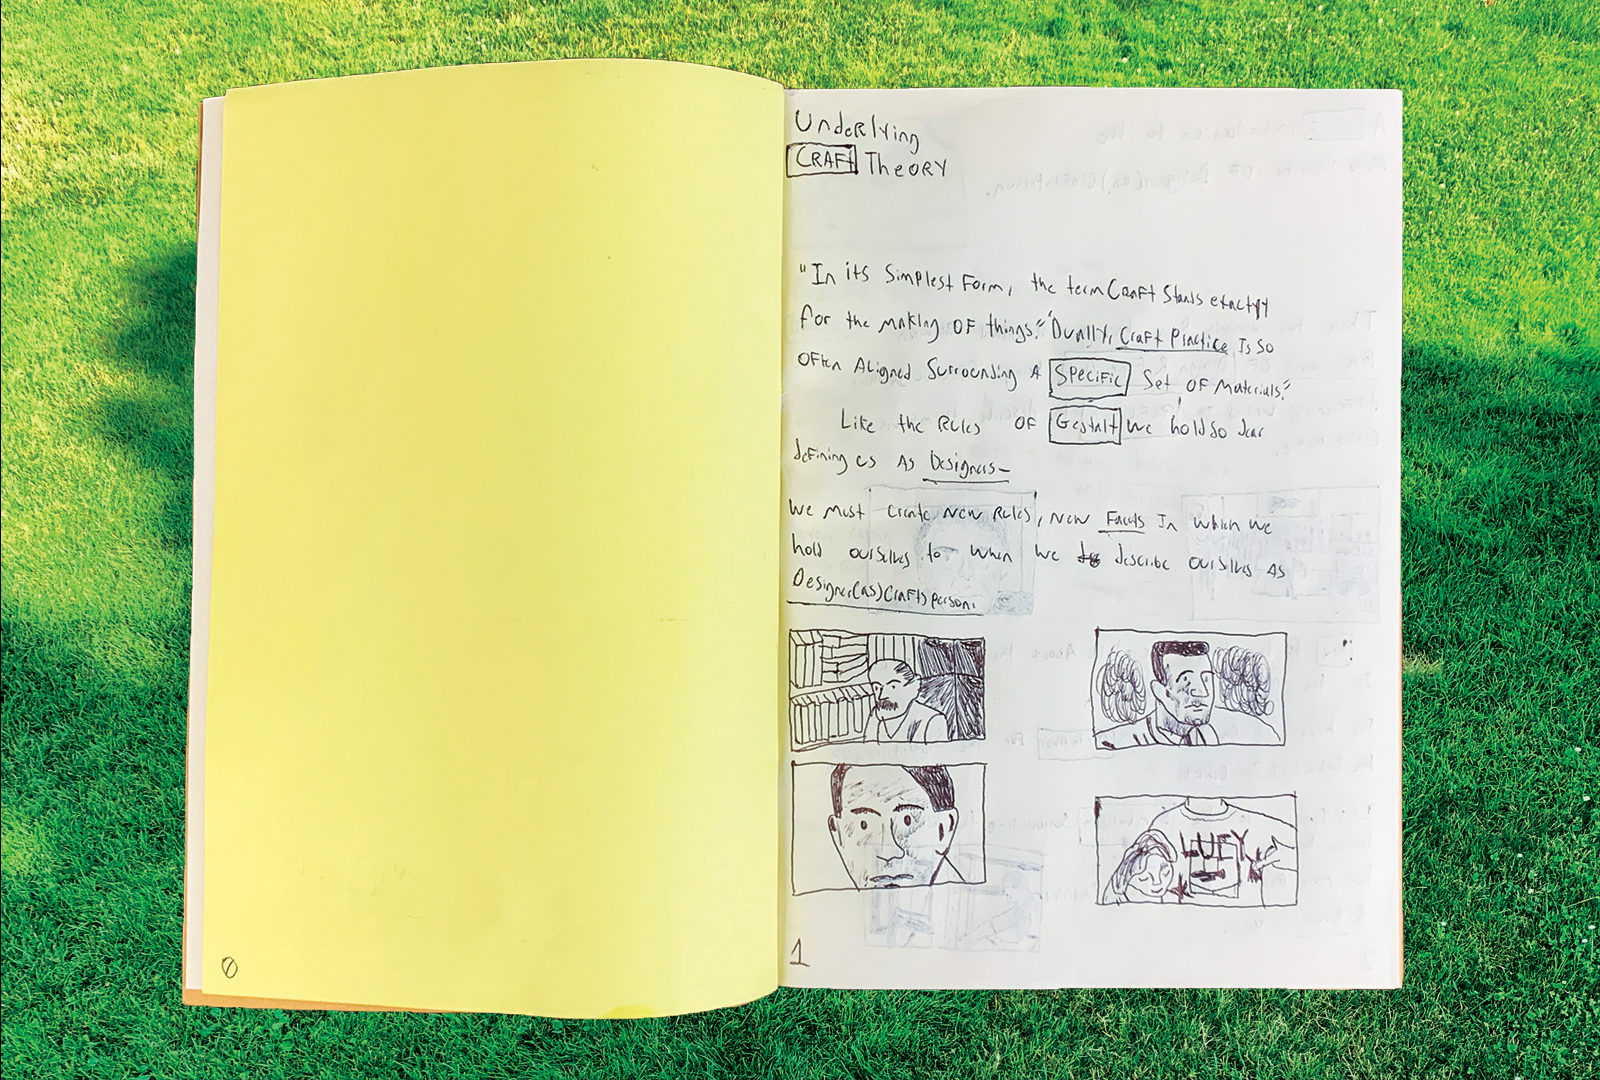 Underlying
CRAFt THeORY
"In its Simplest Form, the term Craft Stands exactly
for the making OF things." "Dually, Craft Practice Is So
OFten Aligned Surrounding A Specific Set OF Materials."
Like the Rules OF Gestalt we hold so dear
defining us As Designers—
We Must Create New Rules, New Facets In which we
hold ourselves to when we describe ourselves As
Designer(as)Craftsperson.
LUFY
0
1